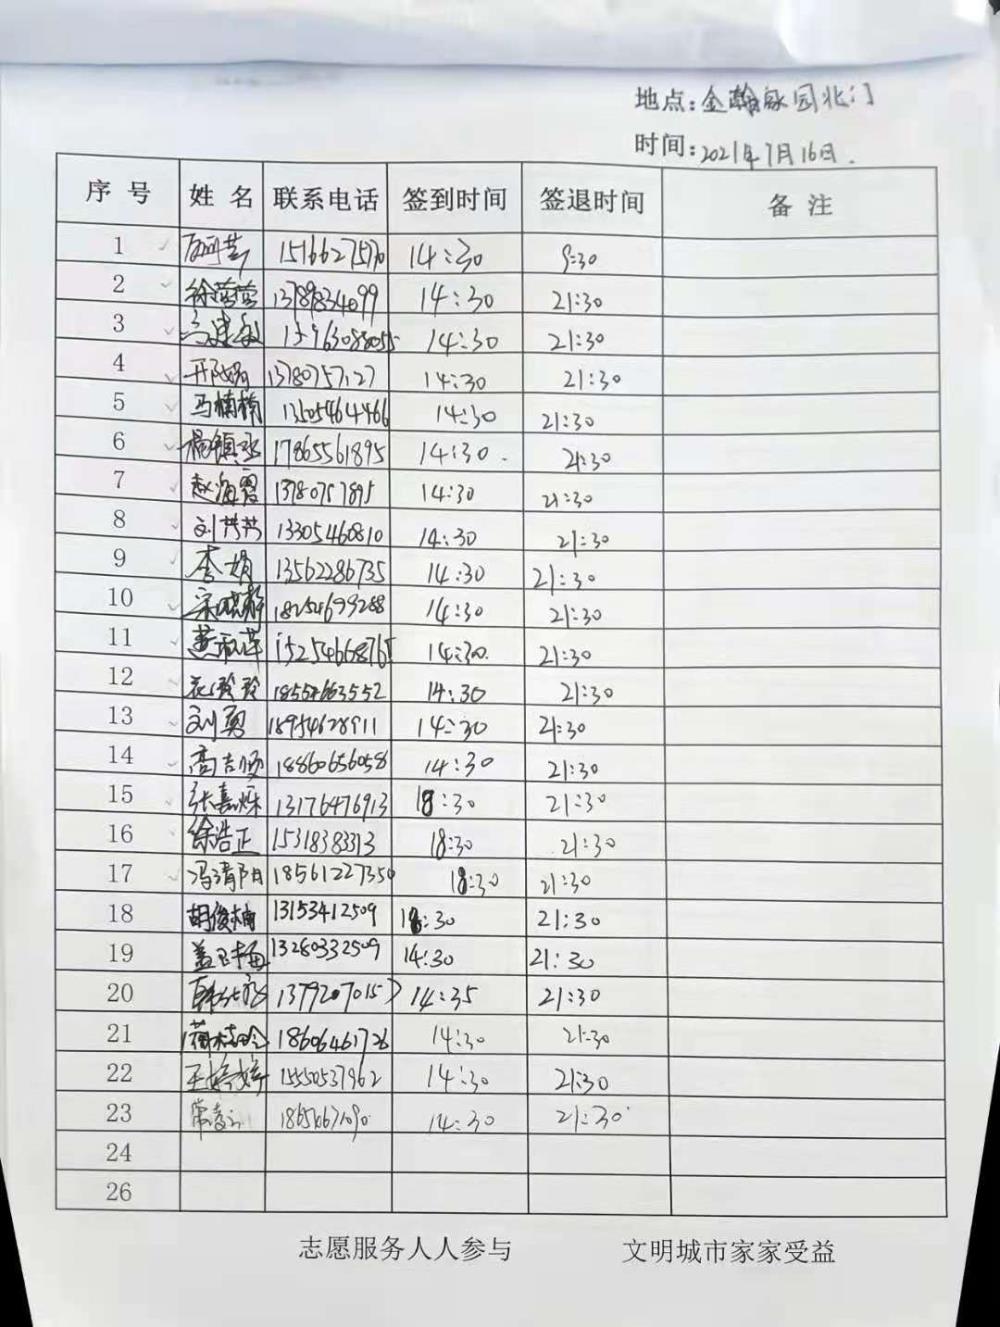 地点:金瀚家园北门
时间:2021年7月16日.
序号 姓名 联系电话 签到时间 签退时间 备注
1 14:30 9:30
2 徐莹莹 13789834099 14:30 21:30
3 15963088055 14:30 21:30
4 13780757127 14:30 21:30
5 马楠楠 13505464466 14:30 21:30
6 杨镇丞 17865561895 14:30. 21:30
7 赵海霞 14:30 21:30
8 刘芳芳 13305460810 14:30 21:30
9 李娟 13562286735 14:30 21:30
10 宋晓静 18254699288 14:30 21:30
11 15254668765 14:30. 21:30
12 14:30 21:30
13 刘勇 18954628911 14:30 21:30
14 18860656058 14:30 21:30
15 张嘉烁 13176476913 18:30 21:30
16 徐浩正 15318383313 18:30 21:30
17 冯清阳 18561227350 18:30 21:30
18 胡俊楠 13153412509 18:30 21:30
19 盖卫梅 13280332509 14:30 21:30
20 13792070157 14:35 21:30
21 18606461726 14:30 21:30
22 王婷婷 15550537962 14:30 21:30
23 14:30 21:30
24
26
志愿服务人人参与 文明城市家家受益